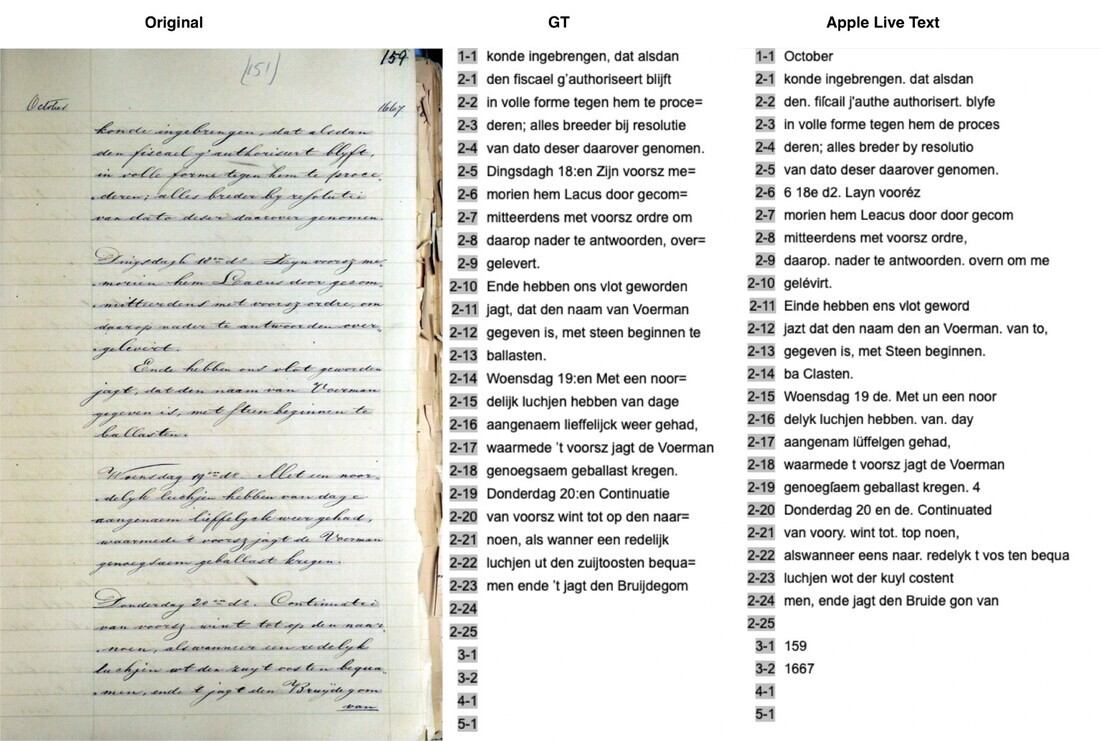 Original
(151)
159
October
1667
konde ingebrengen, dat alsdan
den fiscael g'authoriseert blyft,
in volle forme tegen hem te proce
deren; alles breder by resolutie
van dato deser daarover genomen.
Dingsdagh 18en do. Zyn voorsz me
morien hem Lacus door gecom
mitteerdens met voorsz ordre, om
daarop nader te antwoorden over
gelevert.
Ende hebben ons vlot geworden
jagt, dat den naam van Voerman
gegeven is, met steen beginnen te
ballasten.
Woensdag 19en do. Met een noor
delyk luchjen hebben van dage
aangenaem lieffelyck weer gehad,
waarmede 't voorsz jagt de Voerman
genoegsaem geballast kregen.
Donderdag 20en do. Continuatie
van voorsz wint tot op den naar
noen, als wanneer een redelyk
luchjen uut den zuyt oosten bequa
men, ende 't jagt den Bruydegom
van
GT
1-1 konde ingebrengen, dat alsdan
2-1 den fiscael g'authoriseert blijft
2-2 in volle forme tegen hem te proce=
2-3 deren; alles breeder bij resolutie
2-4 van dato deser daarover genomen.
2-5 Dingsdagh 18:en Zijn voorsz me=
2-6 morien hem Lacus door gecom=
2-7 mitteerdens met voorsz ordre om
2-8 daarop nader te antwoorden, over=
2-9 gelevert.
2-10 Ende hebben ons vlot geworden
2-11 jagt, dat den naam van Voerman
2-12 gegeven is, met steen beginnen te
2-13 ballasten.
2-14 Woensdag 19:en Met een noor=
2-15 delijk luchjen hebben van dage
2-16 aangenaem lieffelijck weer gehad,
2-17 waarmede 't voorsz jagt de Voerman
2-18 genoegsaem geballast kregen.
2-19 Donderdag 20:en Continuatie
2-20 van voorsz wint tot op den naar=
2-21 noen, als wanner een redelijk
2-22 luchjen ut den zuijtoosten bequa=
2-23 men ende 't jagt den Bruijdegom
2-24
2-25
3-1
3-2
4-1
5-1
Apple Live Text
1-1 October
2-1 konde ingebrengen. dat alsdan
2-2 den. fiſcail j'authe authorisert. blyfe
2-3 in volle forme tegen hem de proces
2-4 deren; alles breder by resolutio
2-5 van dato deser daarover genomen.
2-6 6 18e d2. Layn vooréz
2-7 morien hem Leacus door door gecom
2-8 mitteerdens met voorsz ordre,
2-9 daarop. nader te antwoorden. overn om me
2-10 gelévirt.
2-11 Einde hebben ens vlot geword
2-12 jazt dat den naam den an Voerman. van to,
2-13 gegeven is, met Steen beginnen.
2-14 ba Clasten.
2-15 Woensdag 19 de. Met un een noor
2-16 delyk luchjen hebben. van. day
2-17 aangenam lüffelgen gehad,
2-18 waarmede t voorsz jagt de Voerman
2-19 genoegſaem geballast kregen. 4
2-20 Donderdag 20 en de. Continuated
2-21 van voory. wint tot. top noen,
2-22 alswanneer eens naar. redelyk t vos ten bequa
2-23 luchjen wot der kuyl costent
2-24 men, ende jagt den Bruide gon van
2-25
3-1 159
3-2 1667
4-1
5-1